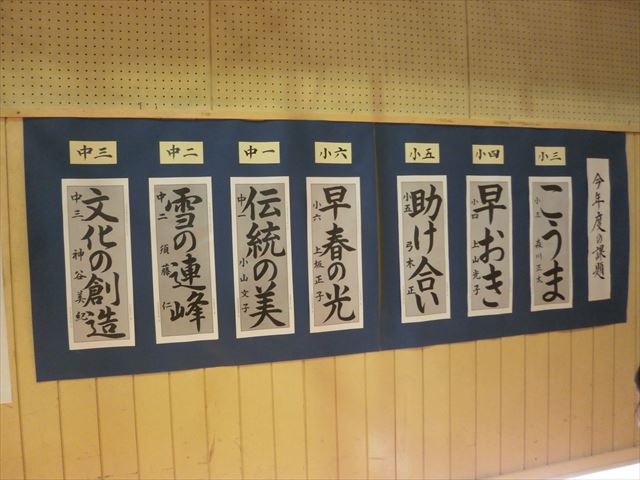 今年度の課題
小三
こうま
小三 森川正太
小四
早おき
小四 上山光子
小五
助け合い
小五 弓木正
小六
早春の光
小六 上坂正子
中一
伝統の美
中一 小山文子
中二
雪の連峰
中二 須藤仁
中三
文化の創造
中三 神谷美総